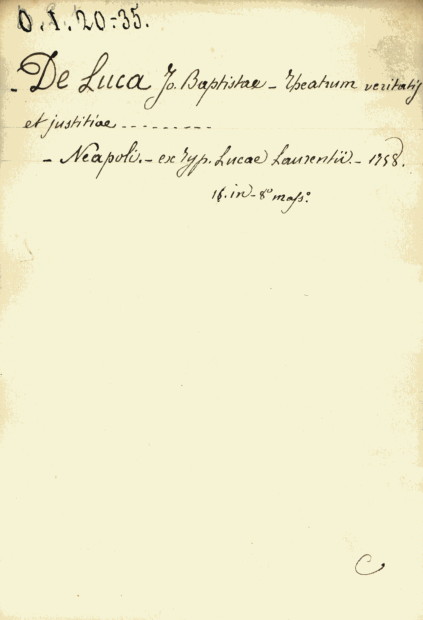 O. I. 20-35.
- De Luca Jo. Baptistae - Theatrum veritatis
et justitiae ---------
- Neapoli. - ex Typ. Lucae Laurentii. - 1758.
16. in-8º mass.º
C